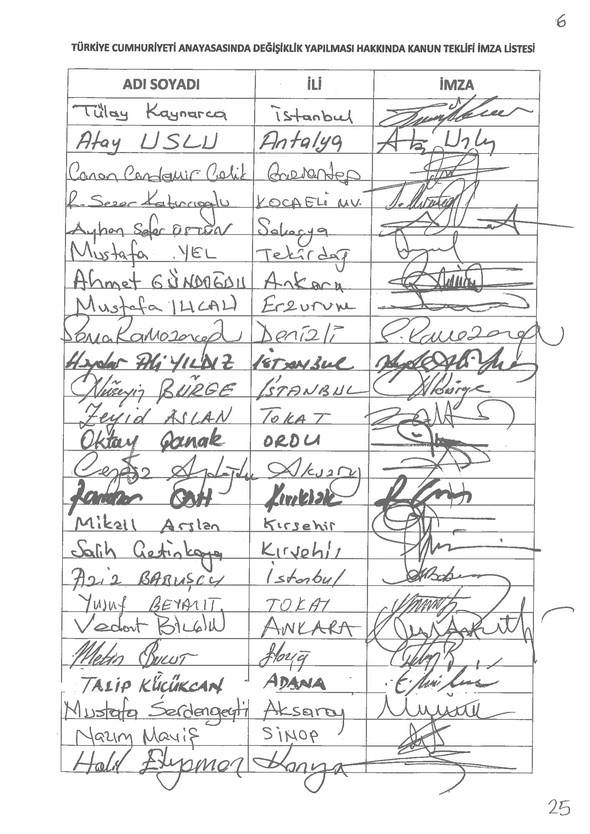 6
TÜRKİYE CUMHURİYETİ ANAYASASINDA DEĞİŞİKLİK YAPILMASI HAKKINDA KANUN TEKLİFİ İMZA LİSTESİ
ADI SOYADI İLİ İMZA
Tülay Kaynarca İstanbul
Atay USLU Antalya Atay Uslu
Canan Candemir Çelik Gaziantep
R. Sezer Katırcıoğlu KOCAELİ MV.
Ayhan Sefer ÜSTÜN Sakarya
Mustafa YEL Tekirdağ
Ahmet GÜNDOĞDU Ankara
Mustafa ILICALI Erzurum
Sema Ramazanoğlu Denizli S. Ramazanoğlu
Haydar Ali YILDIZ İSTANBUL Haydar Ali Yıldız
Hüseyin BÜRGE İSTANBUL HBürge
Zeyid ASLAN TOKAT
Oktay Çanak ORDU
Cengiz Aydoğdu Aksaray
Ramazan CAN Kırıkkale
Mikail Arslan Kırşehir
Salih Çetinkaya Kırşehir
Aziz BABUŞCU İstanbul
Yusuf BEYAZIT TOKAT
Vedat BİLGİN ANKARA
Metin BULUT Elazığ
TALİP KÜÇÜKCAN ADANA
Mustafa Serdengeçti Aksaray
Nazım Maviş SİNOP
Halil Etyemez Konya
25